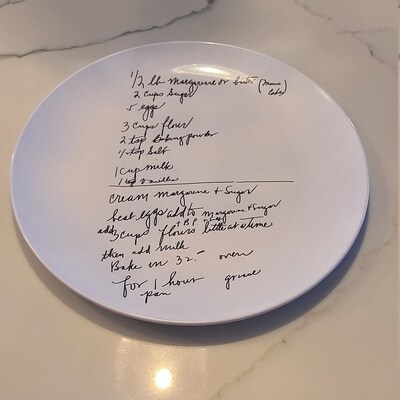 1/2 lb margarine or butter (Mama
2 cups Sugar Cake)
5 eggs
3 cups flour
2 tsp Baking powder
tsp Salt
1 cup milk
1 tsp Vanilla
Cream margarine + Sugar
beat eggs add to margarine + Sugar
add 3 cups flour + B.P. little at a time
then add milk
Bake in oven
for 1 hour grease
pan